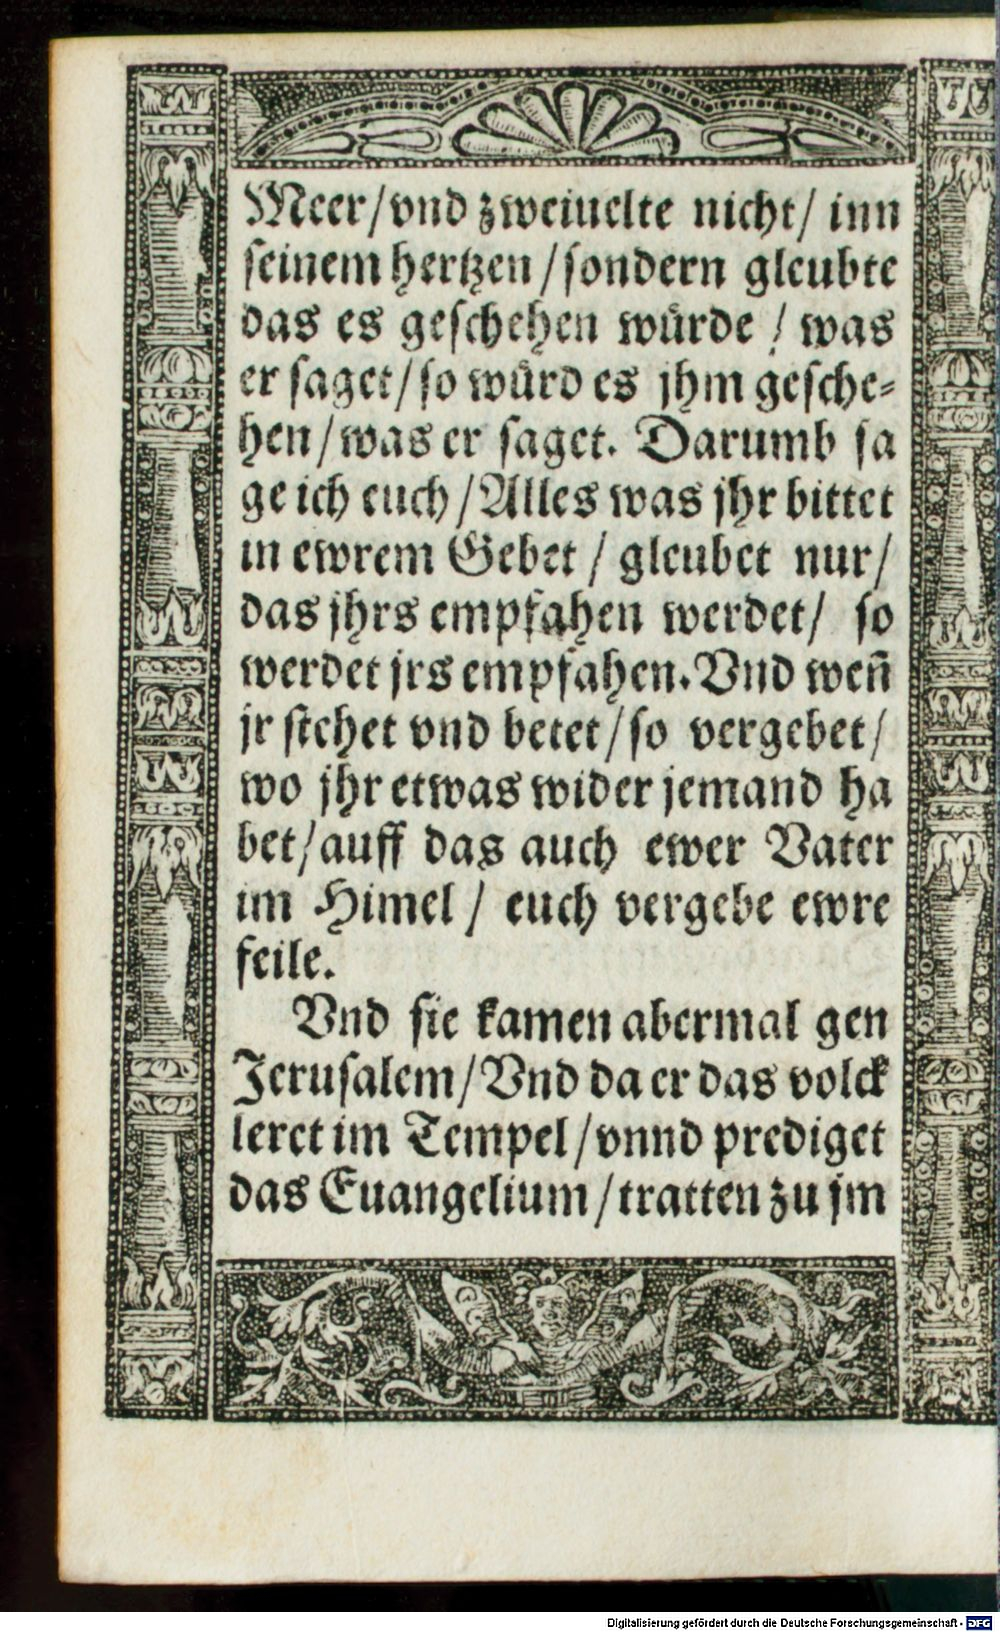 Meer/vnd zweiuelte nicht/ inn
seinem hertzen/sondern gleubte
das es geschehen würde/ was
er saget/so würd es jhm gesche⸗
hen/was er saget. Darumb sa
ge ich euch/Alles was jhr bittet
in ewrem Gebet/ gleubet nur/
das jhrs empfahen werdet/ so
werdet jrs empfahen. Vnd weñ
jr stehet vnd betet/so vergebet/
wo jhr etwas wider jemand ha
bet/auff das auch ewer Vater
im Himel/ euch vergebe ewre
feile.
Vnd sie kamen abermal gen
Jerusalem/Vnd da er das volck
leret im Tempel/vnnd prediget
das Euangelium/tratten zu jm
Digitalisierung gefördert durch die Deutsche Forschungsgemeinschaft - DFG